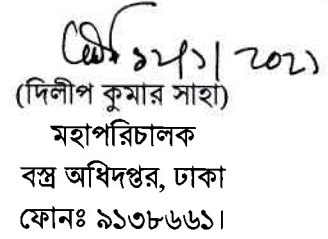 ২০২১
(দিলীপ কুমার সাহা)
মহাপরিচালক
বস্ত্র অধিদপ্তর, ঢাকা
ফোনঃ ৯১৩৮৬৬১।